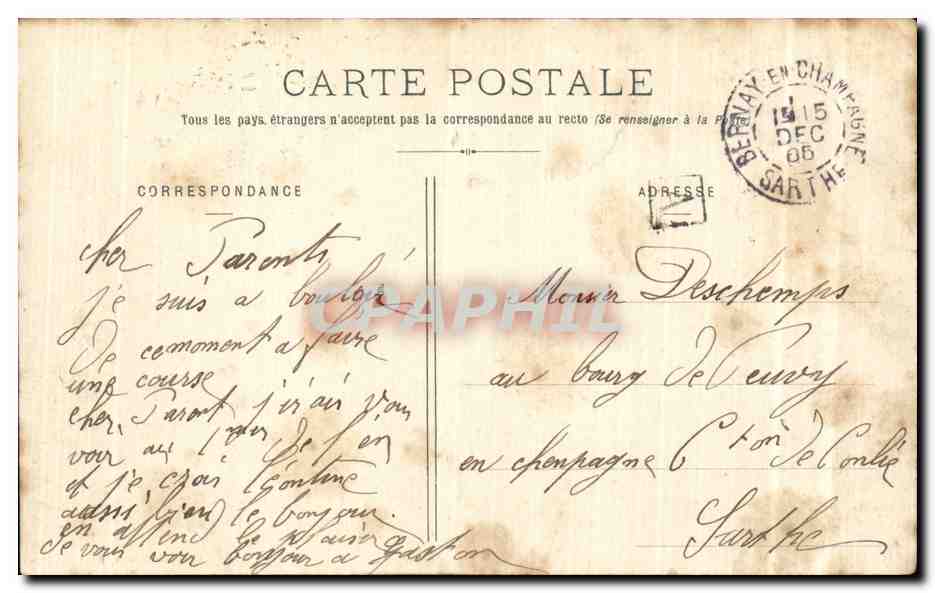 CARTE POSTALE
Tous les pays étrangers n'acceptent pas la correspondance au recto (Se renseigner à la Poste)
BERNAY-EN-CHAMPAGNE
15
DEC
05
SARTHE
CORRESPONDANCE
ADRESSE
cher Parents
je suis a bouloir
de ce moment a faire
une course
cher Parent j'irair vous
voir au 1er jour de l'en
et je crois Léontine
aussi bien le bonjour.
en attend le plaisir
de vous voir bonjour a Gaston
Monsieur Deschemps
au bourg de Neuvy
en chenpagne Cton de Conlie
Sarthe
CPAPHIL